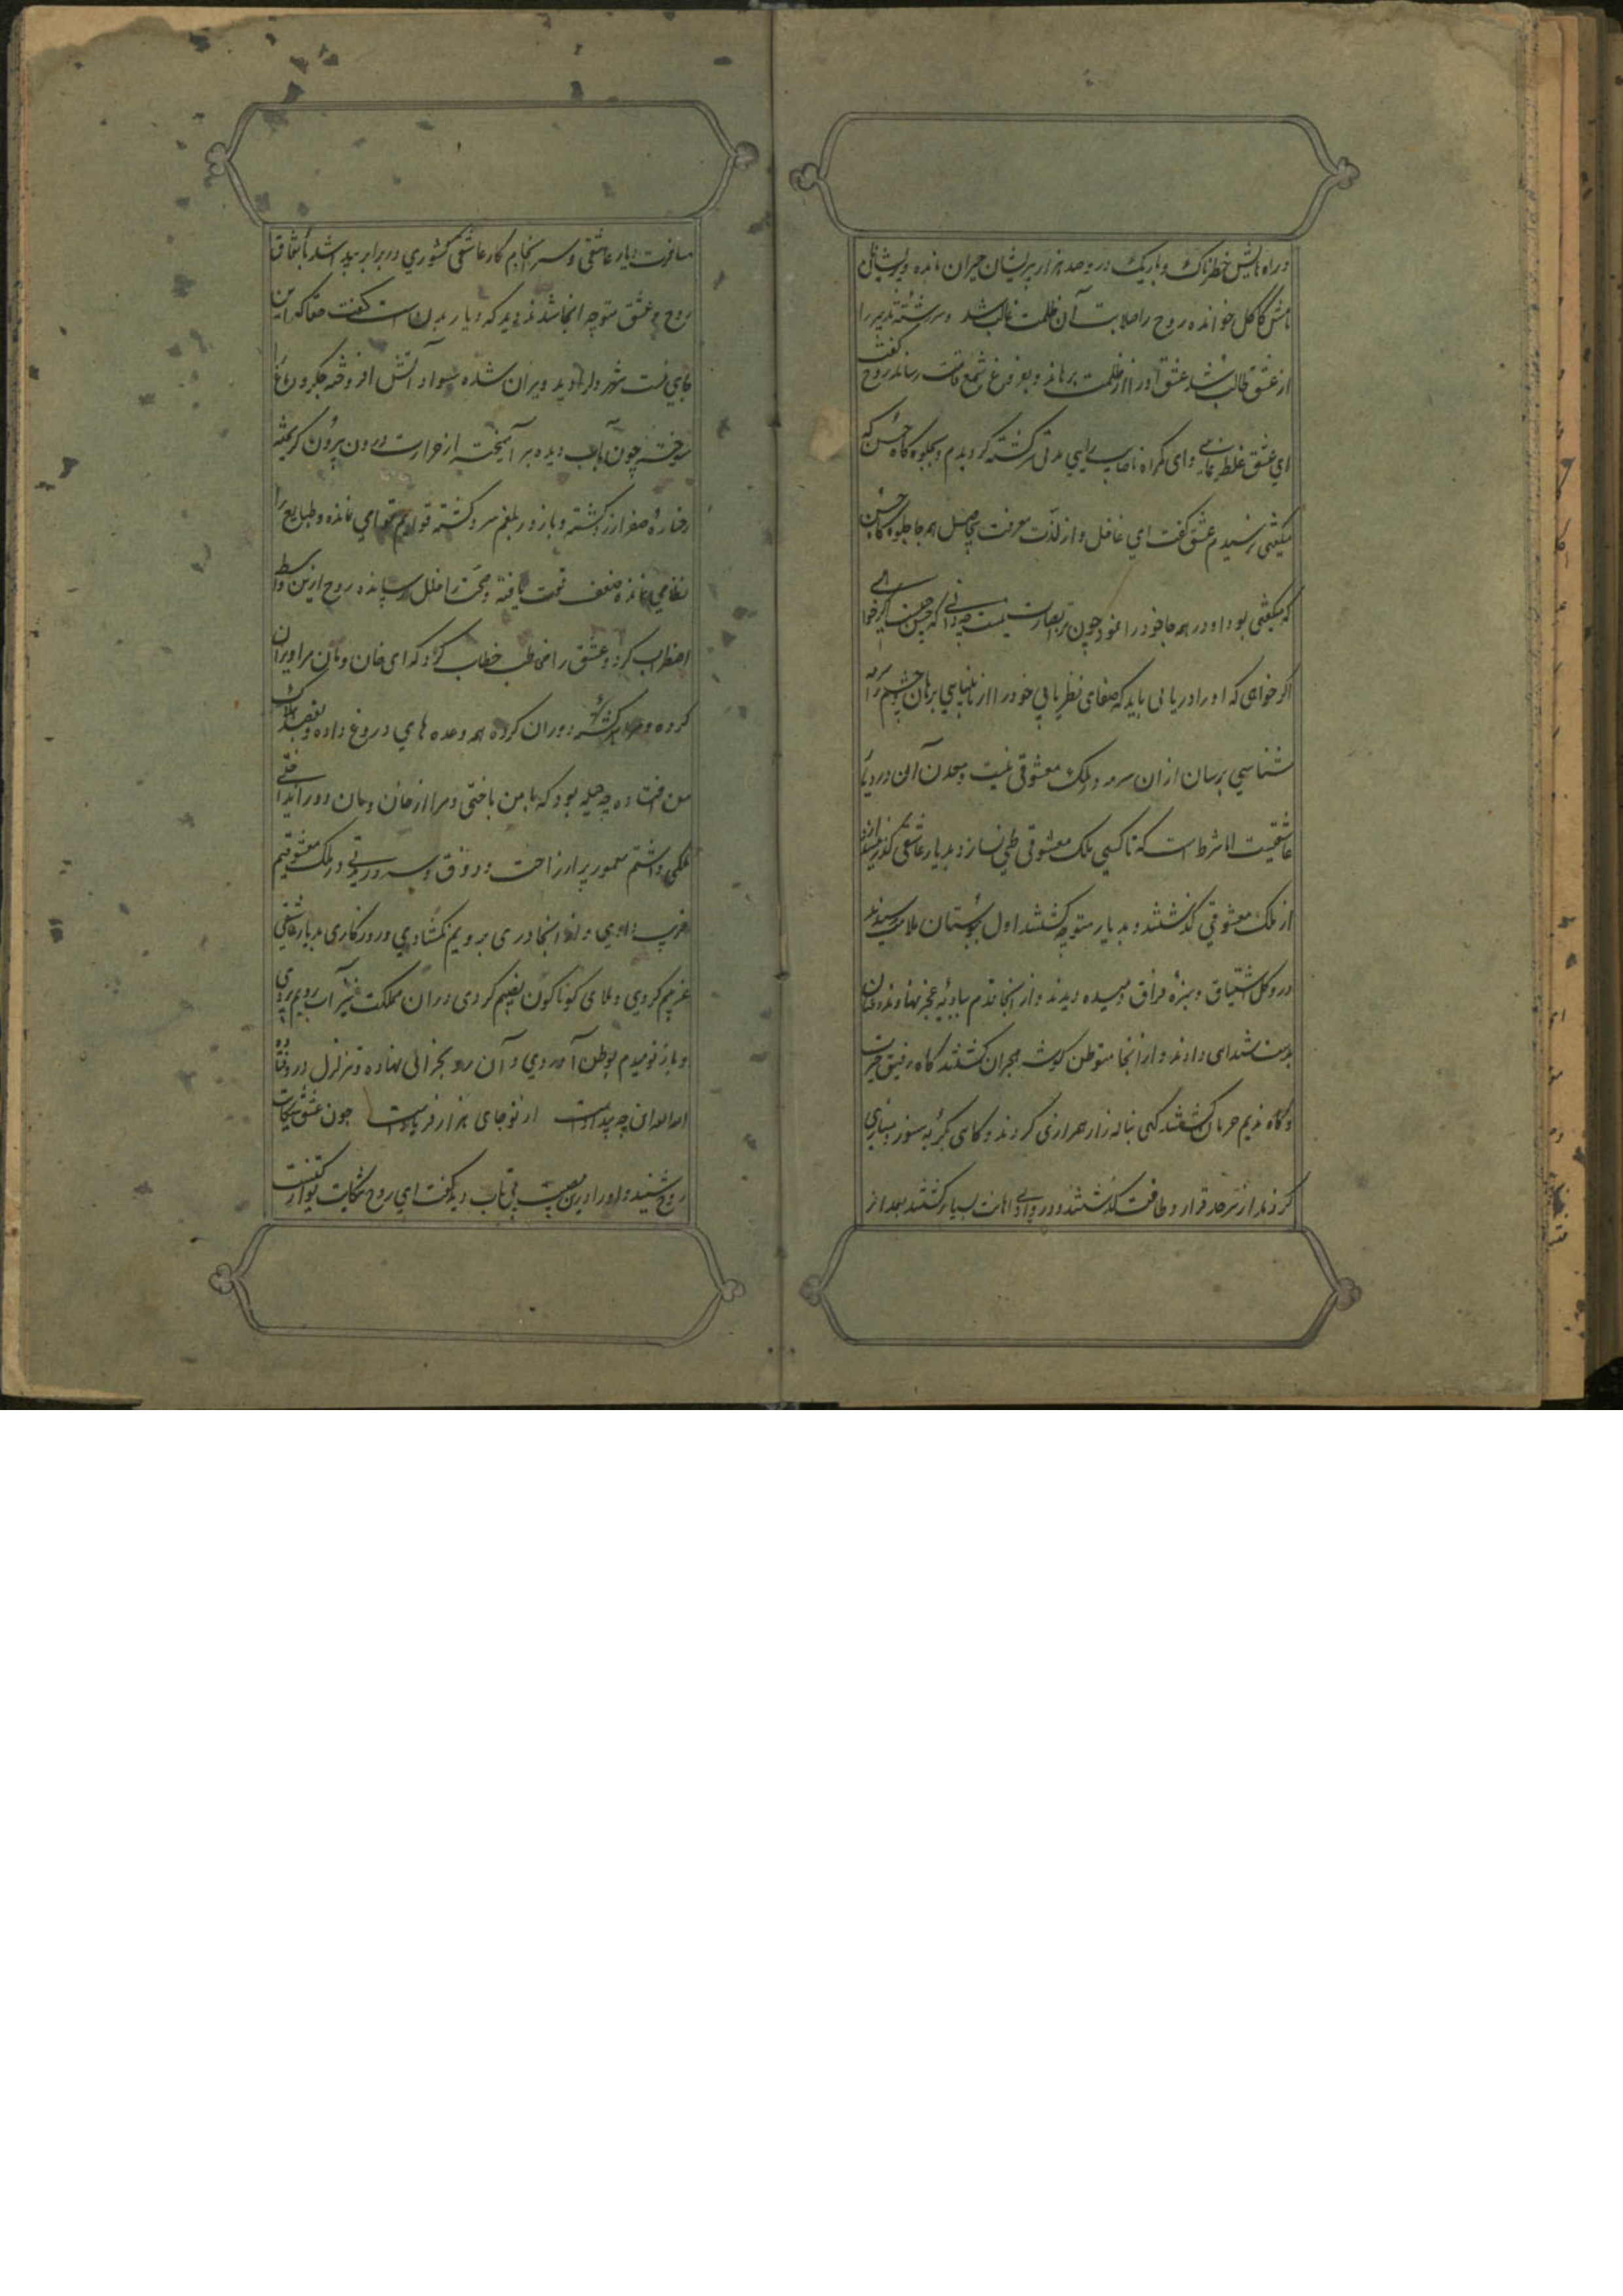 و راه هایش خطرناک و باریک در و صد هزار پریشان حیران مانده و پریشانی
نامش کاکل خوانده روح را صلابت آن ظلمت غالب شد و سررشته تدبیر را
از عشق طالب شد عشق او را از ظلمت برهاند و بفروغ شمع قامت رساند روح گفت
ای عشق غلط نمای وای گمراه ناصواب رایی مدتی سرگشته گردیدم و بجلوه گاه حسن که
میگفتی نرسیدم عشق گفت ای غافل و از لذت معرفت بیحاصل همه جا جلوه گاه حسن
که میگفتی بود او در همه جا خود را نمود چون ترا بصارت نیست چه دانی که حسن چیست اگر خوا
اگر خواهی که او را دریابی باید که صفای نظر یابی خود را از نابینایی برهان و چشم را بسرمه
شناسی برسان از آن سرمه در ملک معشوقی نیست و معدن آن در دیار
عاشقیست اما شرط است که تا کسی ملک معشوقی طی نسازد بدیار عاشقی گذر نیندازد
از ملک معشوقی گذشتند و بدیار متوجه گشتند اول به بوستان ملامت رسیدند
درو گل اشتیاق و سبزه فراق دمیده دیدند و از آنجا قدم ببادیه عجز نهادند و عنان
بدست شیدایی دادند و از آنجا متوطن گوشه هجران گشتند گاه رفیق حیرت
و گاه ندیم حرمان گشتند گهی بناله زار همرازی کردند و گاهی بگریه بسوز دمسازی
کردند از سرحد قرار و طاقت گذشتند و در وادی اهانت بسیار گشتند بعد از
مسافرت دیار عاشقی و سرانجام کار عاشقی کشوری در برابر پیدا شد باتفاق
روح و عشق متوجه آنجا شدند دید که دیار بدن است گفت حقا که این
جای منست شهر دل را دید ویران شده سواد آتش افروخته جگر و دماغ را
سوخته چون آب دیده بر آمیخته از حرارت درون بیرون گریخته
رخساره صفرا زرد گشته و بازو بلغم سرد گشته قوایم قوامی نمانده و طبایع را
نظامی نمانده ضعف قوت یافته و صحت را خلل رسانده روح ازین واسطه
اضطراب کرد و عشق را مخاطب خطاب کرد که ای خان و مان مرا ویران
کرده و مرا سرگشته دوران کرده همه وعده های دروغ داده و بقصد هلاک
من افتاده چه حیله بود که با من باختی و مرا از خان و مان دور انداختی
ملکی داشتم معمور پر از راحت و ذوق و سرور بدیتی در ملک معشوقیم
فریب دادی و از آنجا دری برویم نگشادی و روزگاری بدیار عاشقی
عزیم کردی و بلای گوناگون نصیبم کردی در آن مملکت نیز آب رویم بردی
و باز نومیدم بوطن آوردی و آن رو بخرابی نهاده و تزلزل درو فتاده
الله الله این چه بیدادست از تو جای هزار فریادست چون عشق شکایت
روح شنید و او را درین تعب بی تاب دید گفت ای روح شکایت تو از